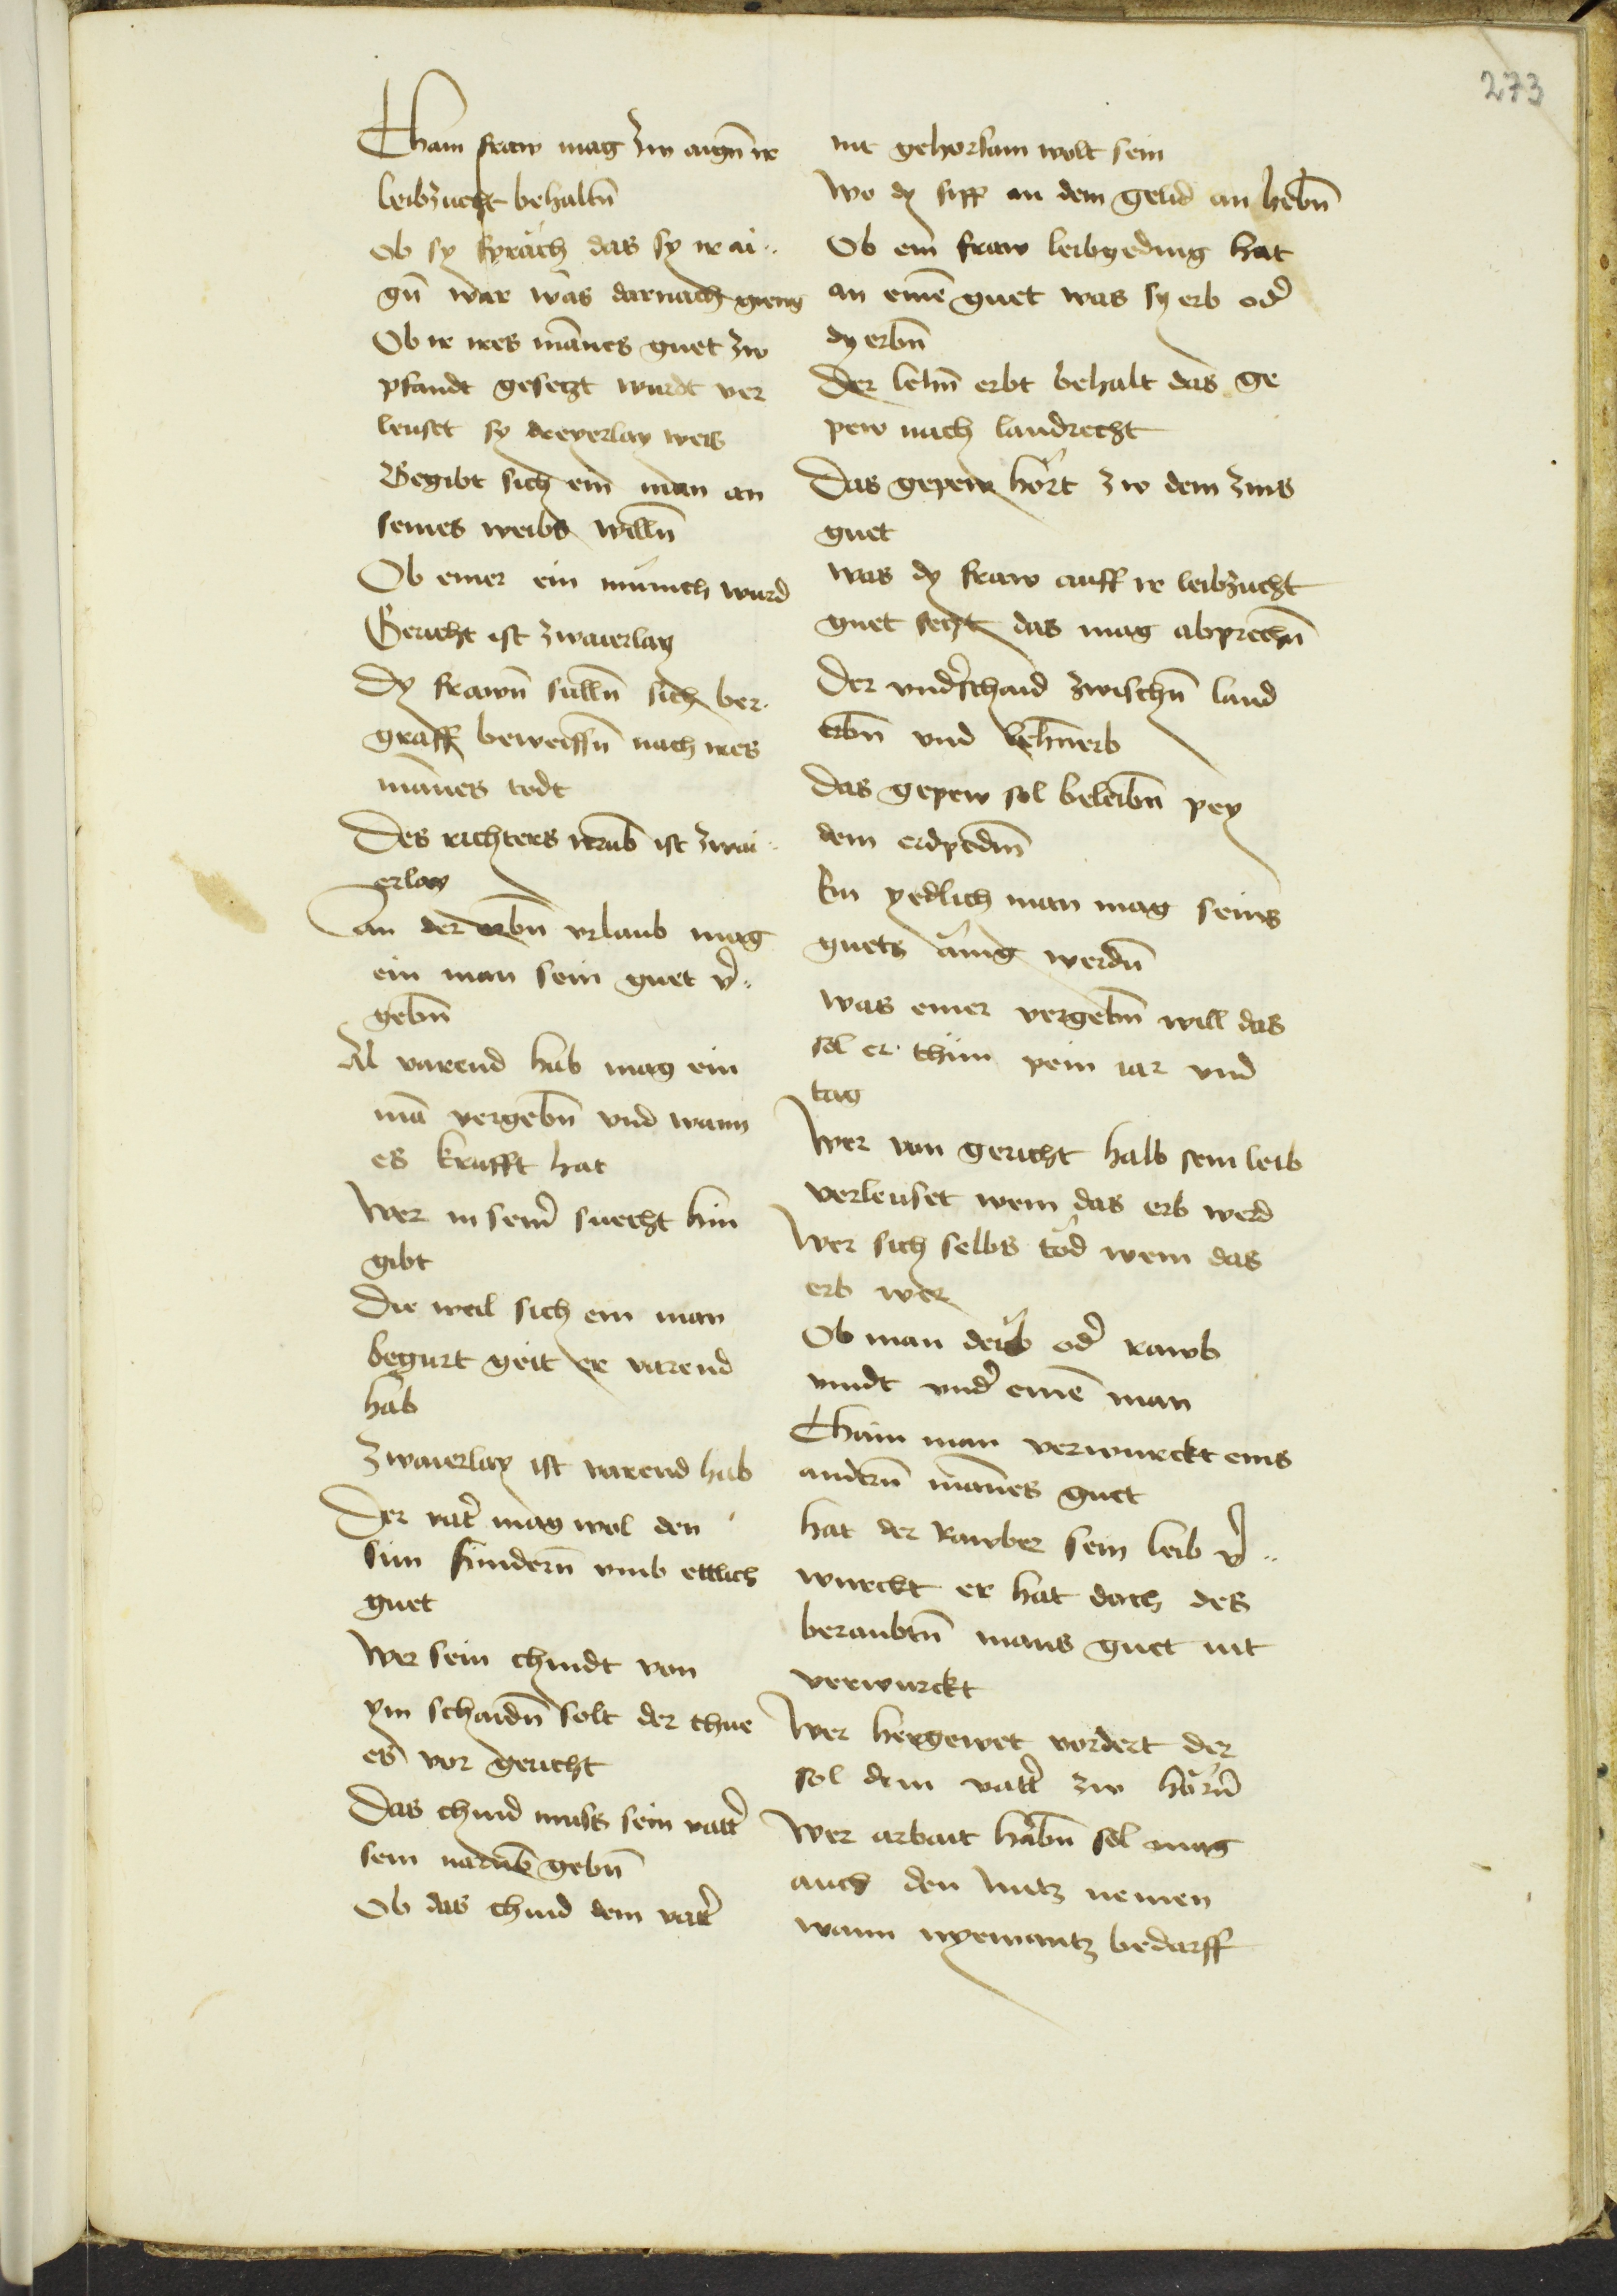 273
Cham fraw mag zw aigñ ir
leibzucht behaltñ
Ob sy sprach das sy ir ai„
gñ war was darnach gieng
Ob ir ires mãnes guet zw
pfandt gesetzt wurdt ver
leuset sy dreyerlay weis
Begibt sich ein man an
seines weibs willñ
Ob einer ein münich wurd
Gericht ist zwaierlay
Dy frawñ sullñ sich ber
graff beweissñ nach ires
mãnes todt
Des richters ist zwai„
erlay
An der erbñ vrlaub mag
ein man sein guet v̾„
gebñ
Al varend hab mag ein
mã vergebñ vnd wann
es krafft hat
Wer in sein̾ suecht hin
gibt
Die weil sich ein man
begurt geit er varend
hab
Zwaierlay ist varend hab
Der vat̾ mag wol den
sun sundern̄ vmb ettlich
guet
Wer sein chindt von
ym schaidñ solt der thue
es vor gericht
Das chind muss sein vatt̾
sein gebñ
Ob das chind dem vat̾
nit gehorsam wolt sein
Wo dy sipp an dem gelid an hebñ
Ob ein fraw leibgeding hat
an einẽ guet was sy erb od̾
dy erbñ
Der lehñ erbt behalt das ge
pew nach landrecht
Das gepew hört zw dem zins
guet
Was dy fraw auff ir leibzucht
guet setzt das mag abprechñ
Der vnd̾schaid zwischñ land
erbñ vnd lehñerb
Das gepew sol beleibñ pey
dem erdpodm̄
Ein yedlich man mag seins
guets änig werdñ
Was einer vergebñ will das
sol er thun pein iar vnd
tag
Wer von gericht halb sein leib
verleuset wem das erb werd
Wer sich selbs töd wem das
erb wer
Ob man deub od̾ rawb
vindt vnd̾ einẽ man
Chain man verwurckt eins
andern̄ mãnes guet
hat der Rawber sein leib v̾„
wurckt er hat doch des
beraubtñ mans guet nit
verwurckt
Wer hergewet vordert der
sol dem vatt̾ zw hörn̄
Wer arbait habñ sol mag
auch den nutz nemen
wann nyemantz bedarff